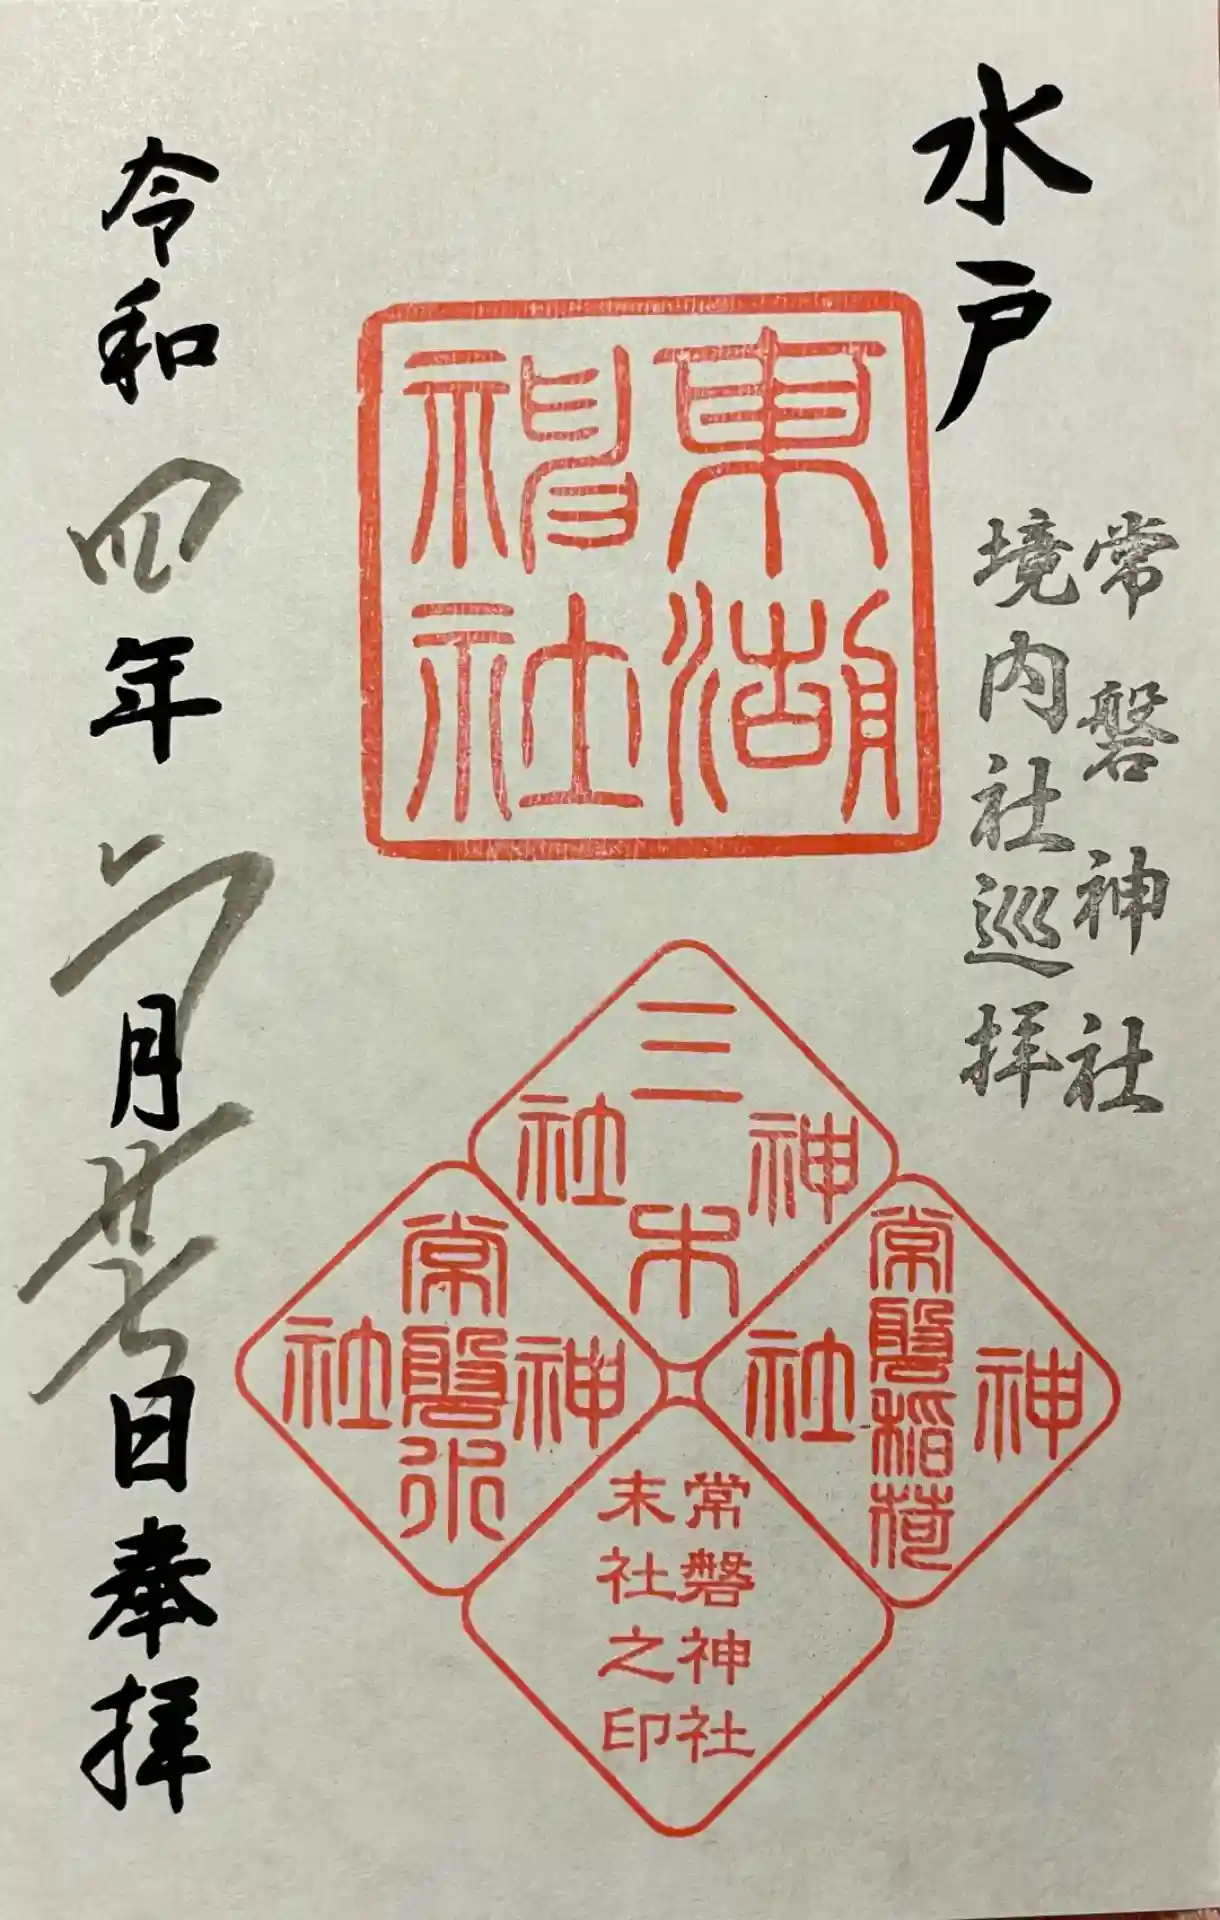 水戸
常磐神社
境内社巡拝
東湖
神社
三木
神社
常磐稲荷
神社
常磐
神社
常磐神社
末社之印
令和四年六月廿七日奉拝